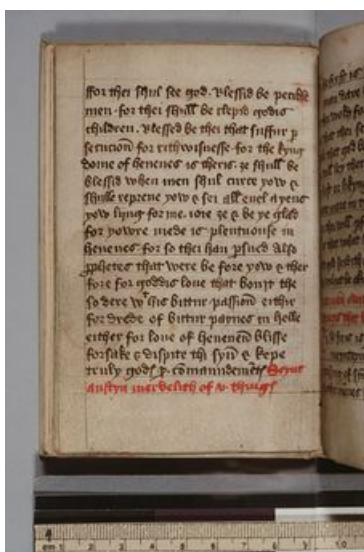 ffor thei shul see god. Blessid be pecible
men. for thei schull be clepid godis
children. Blessed be thei that suffur p
secucion for rithwisnesse. for the kyng
dome of heuenes is theris. ze shull be
blessid when men shul curce yow &
shulle repreue yow & sei all euel ayens
yow lying for me. ioie ze & be ye glad
for yowre mede is plentuouse in
heuenes for so thei han psued also
pphetes that were be fore yow & ther
fore for goddis loue that bouzt the
so dere wt his bittur passion eithir
for drede of bittur paynes in helle
either for loue of heuenen blisse
forsake & dispise thi syn & kepe
truly gods x. comaundemetis Seynt
austyn meruelith of v. things